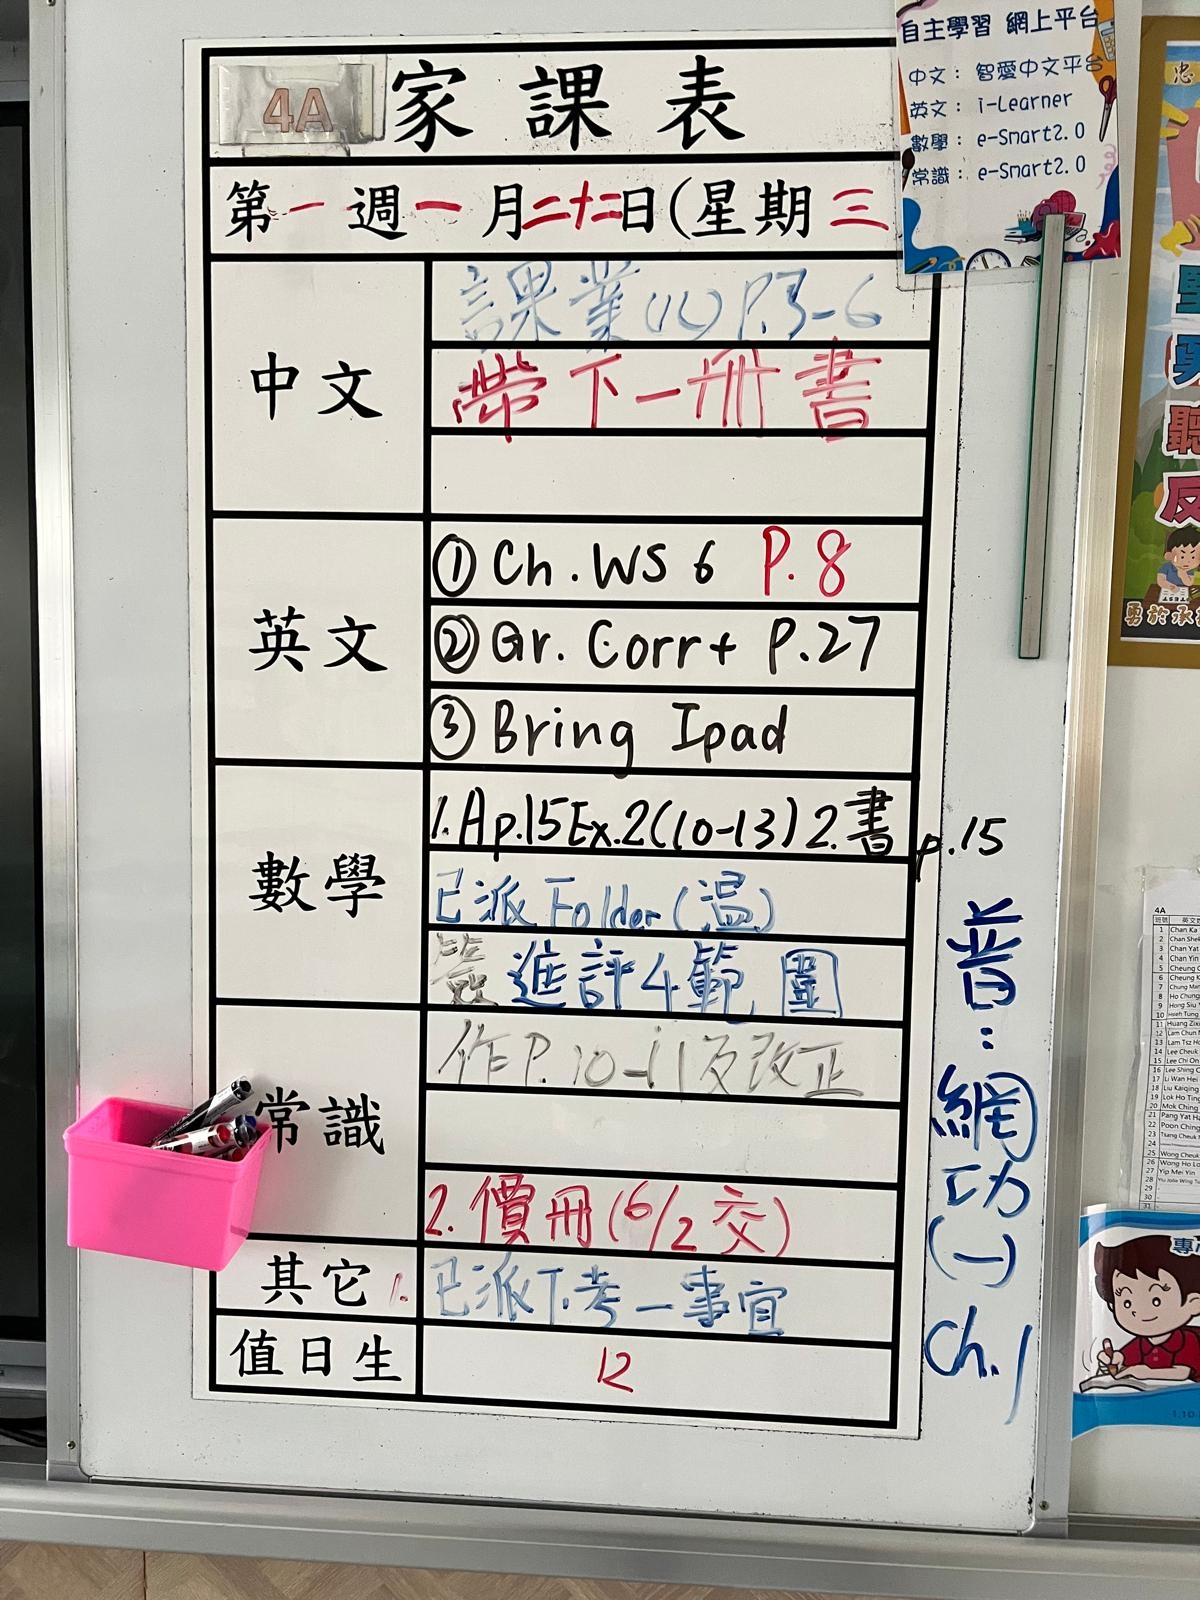 4A 家課表
第一週一月二十二日(星期三
中文
課業(八)P.3-6
帶下一冊書
英文
① Ch. WS 6 P.8
② Gr. Corr+ P.27
③ Bring Ipad
數學
1. A p.15 Ex.2(10-13) 2. 書 p.15
已派 Folder (溫)
簽 進評4範圍
常識
作P.10-11及改正
2. 價冊(6/2交)
其它 1.
已派下.考一事宜
值日生
12
普:網功(一) Ch.1
自主學習 網上平台
中文: 智愛中文平台
英文: i-Learner
數學: e-Smart2.0
常識: e-Smart2.0
4A
1 Chan Ka
2 Chan Shek
3 Chan Yat
4 Chan Yin
5 Cheung
6 Cheung K
7 Chung Man
8 Ho Chung
9 Hong Siu
10 Hseh Tung
11 Huang Zixi
12 Lam Chun
13 Lam Tsz Ho
14 Lee Cheuk
15 Lee Chi On
16 Lee Shing
17 Li Wan Hei
18 Liu Kaiqing
19 Lok Ho Ting
20 Mok Ching
21 Pang Yat Ha
22 Poon Ching
23 Tsang Cheuk
24
25 Wong Cheuk
26 Wong Ho Lo
27 Yip Mei Yin
28 Yiu Jolie Wing
29
30
31
勇於承